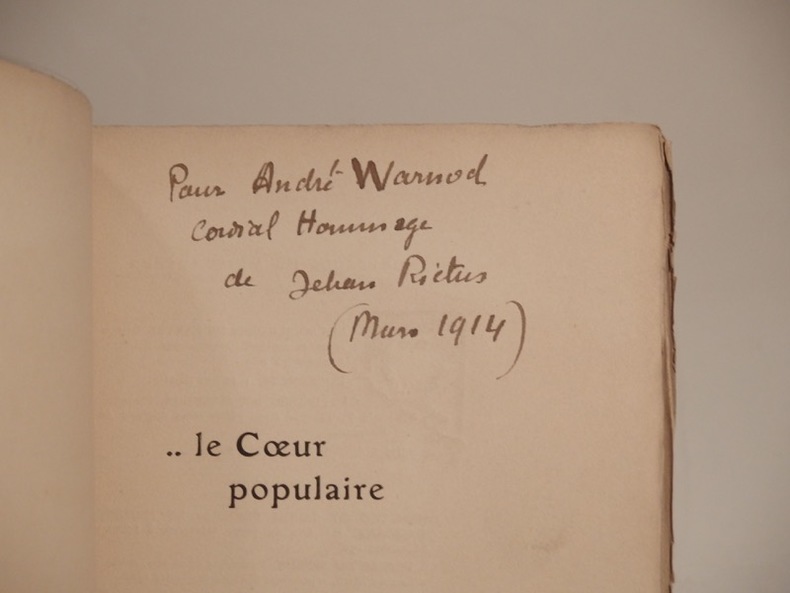 Pour André Warnod
Cordial Hommage
de Jehan Rictus
(Mars 1914)
.. le Cœur
populaire